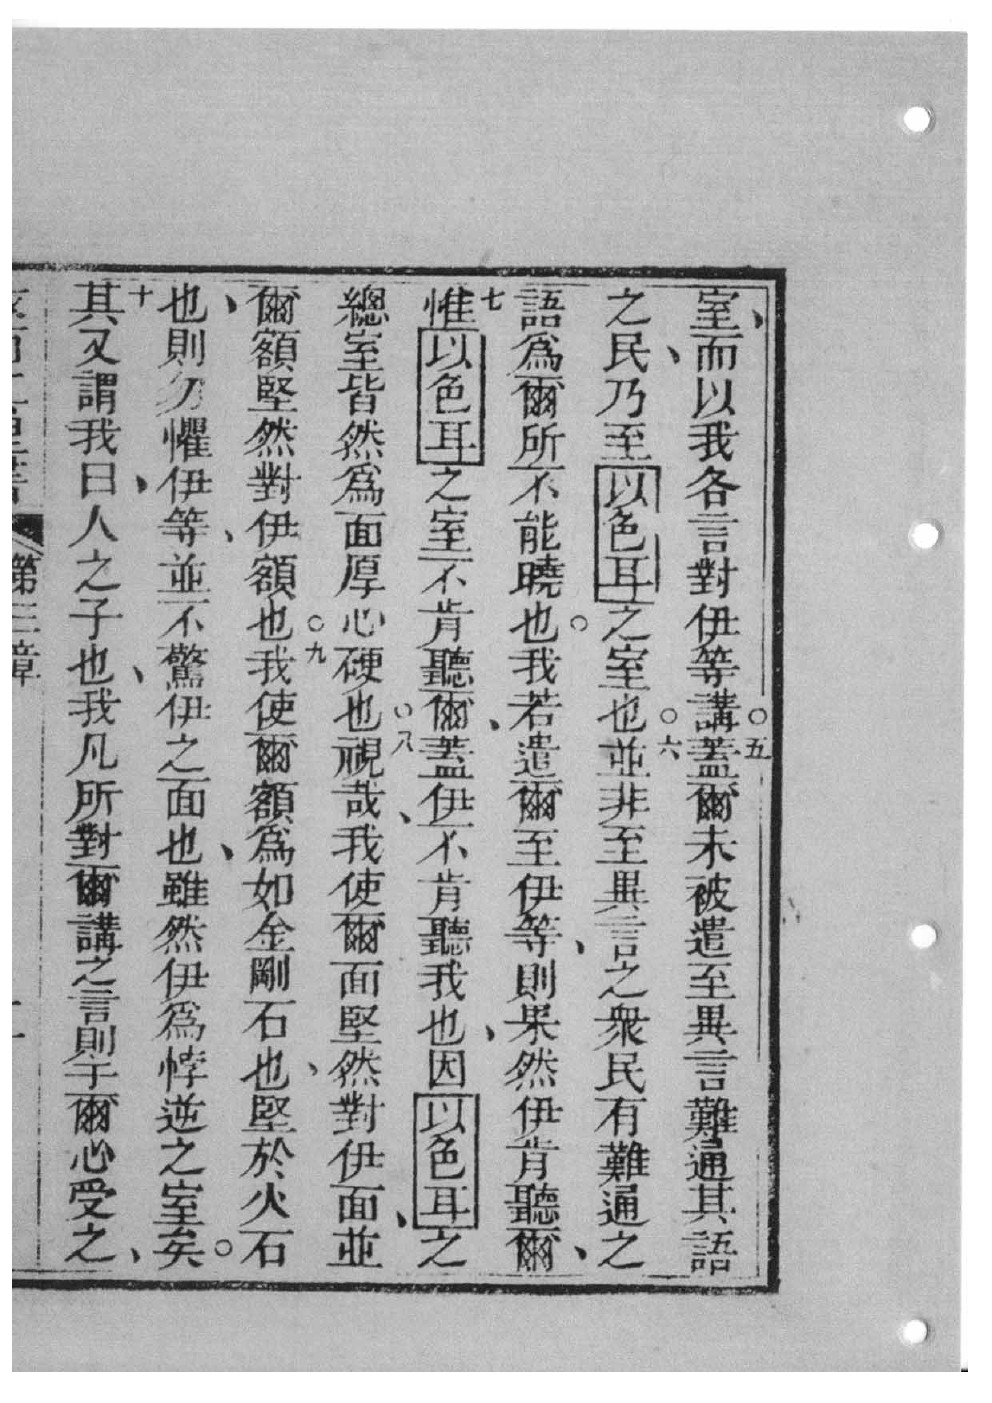 室、而以我各言對伊等講○五蓋爾未被遣至異言難通其語
之民、乃至以色耳之室也○六並非至異言之衆民有難通之
語爲爾所不能曉也○我若遣爾至伊等、則果然伊肯聽爾、
七惟以色耳之室不肯聽爾、蓋伊不肯聽我也、因以色耳之
總室皆然爲面厚心硬也○八視哉、我使爾面堅然對伊面、並
爾額堅然對伊額也○九我使爾額爲如金剛石也、堅於火石
也、則勿懼伊等、並不驚伊之面也、雖然伊爲悖逆之室矣○
十其又謂我曰、人之子也、我凡所對爾講之言則于爾心受之、
第三章